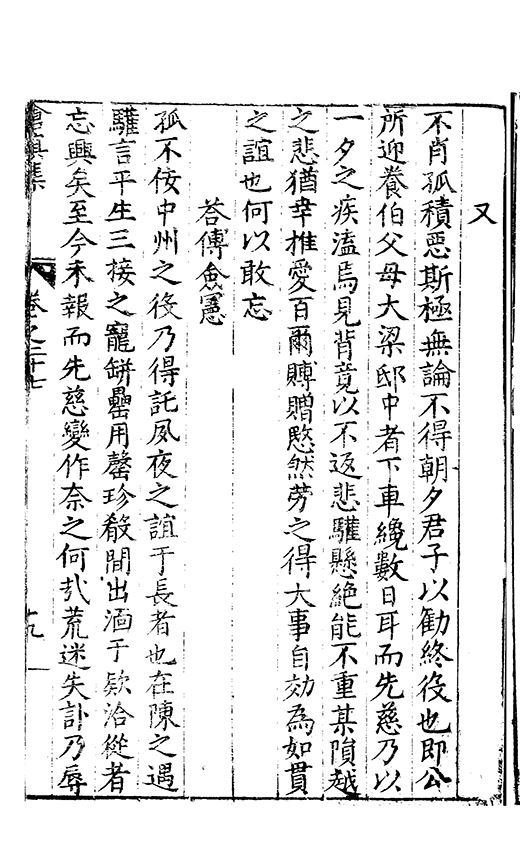 又
不肖孤積惡斯極無論不得朝夕君子以勸終役也即公
所迎養伯父母大梁邸中者下車纔數日耳而先慈乃以
一夕之疾溘焉見背竟以不返悲驩懸絶能不重某隕越
之悲猶幸推愛百爾賻贈愍然勞之得大事自効為如貫
之誼也何以敢忘
荅傅僉憲
孤不佞中州之役乃得託夙夜之誼于長者也在陳之遇
驩言平生三接之寵缾罍用罄珍殽間出湎于欵洽從者
忘興矣至今未報而先慈變作奈之何㢤荒迷失訃乃辱
滄溟集
卷之二十七
十九